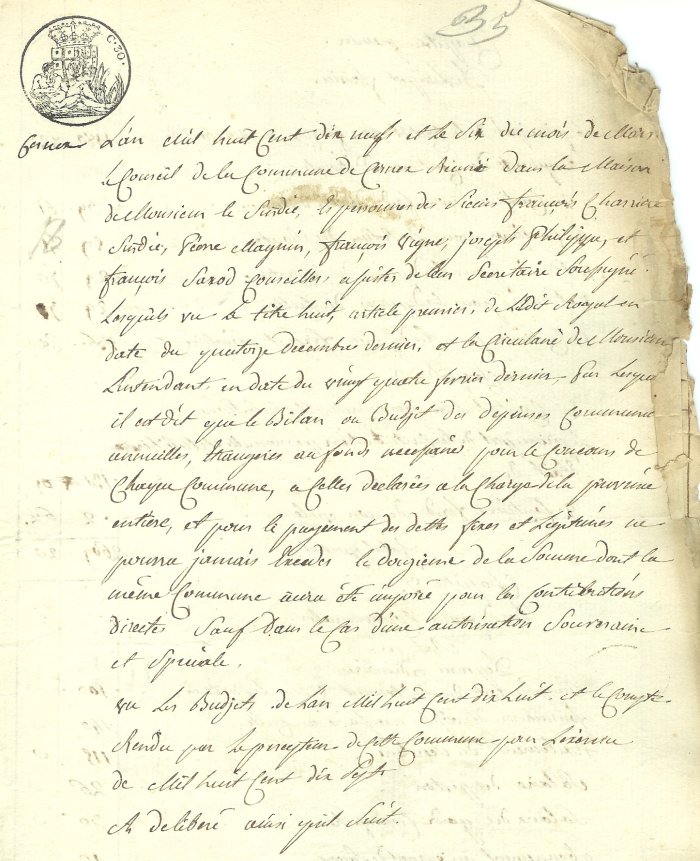 35
C. 30.
Cernex L'an Mil huit Cent dix neuf et le Six du mois de Mars
le Conseil de la Commune de Cernex Réunié dans la Maison
de Monsieur le Sindic, les personnes des Sieurs françois Charriere
Sindic, Pierre Magnin, françois Vigne, joseph Philippe, et
françois Saxod Conseillers assistes de leur Secretaire Soussigné.
Lesquels vu le titre huit, article premier, de L'edit Royal en
date du quatorze decembre dernier, et la Circulaire de Monsieur
L'intendant en date du vingt quatre fevrier dernier, Par Lesquels
il est dit que le Bilan ou Budjet des depenses Communa
annuelles, Etrangeres au fonds necessaire pour le Concours de
Chaque Commune, a Celles declarées a la Charge de la province
entiere, et pour le payement des dettes fixes et Legitimes ne
pourra jamais Exceder le douzieme de la Somme dont la
même Commune aura été imposée pour les Contributions
Directes Sauf Dans le Cas d'une autorisation Souveraine
et Speciale.
vu Les Budjets de L'an Mil huit Cent dix huit et le Compte
Rendu par le percepteur de Cette Commune pour L'exercice
de Mil huit Cent dix Sept
A deliberé ainsi qu'il Suit.